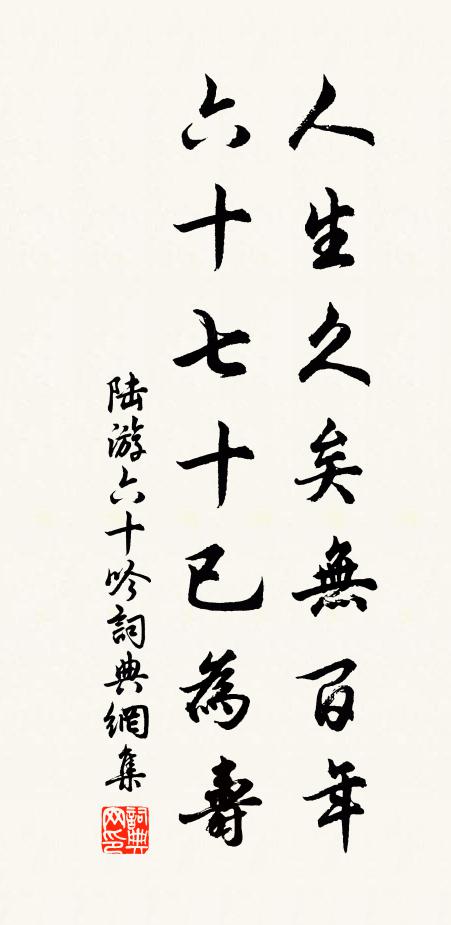 人生久矣無百年
六十七十已為壽
陸游六十吟詞典網集
詞典網印